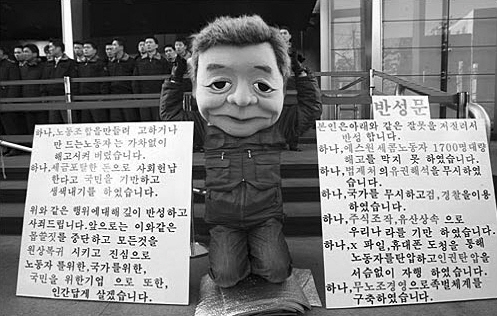 반성문
본인은아래와 같은 잘못을 저질러서
반성 합니다.
하나,에스원 세콤노동자 1700명대량
해고를 막지 못 하였습니다.
하나,법제처의유권해석을 무시하였
습니다.
하나,국가를 무시하고검,경찰을이용
하였습니다.
하나,주식조작,유산상속 으로
우리나라를 기만 하였습니다.
하나,x 파일,휴대폰 도청을 통해
노동자를탄압하고인권탄압을
서슴없이 자행 하였습니다.
하나,무노조경영으로족벌체계를
구축하였습니다.
하나,노동조합을만들려 고하거나
만 드는노동자는 가차없이
해고시켜 버렸습니다.
하나,세금포탈한 돈으로 사회헌납
한다고 국민을 기만하고
생색내기를 하였습니다.
위와같은 행위에대해 깊이 반성하고
사죄드립니다.앞으로는 이와같은
몹쓸짓을 중단하고 모든것을
원상복귀 시키고 진심으로
노동자 를위한,국가를위한,
국민을 위한기업 으로 또한,
인간답게 살겠습니다.